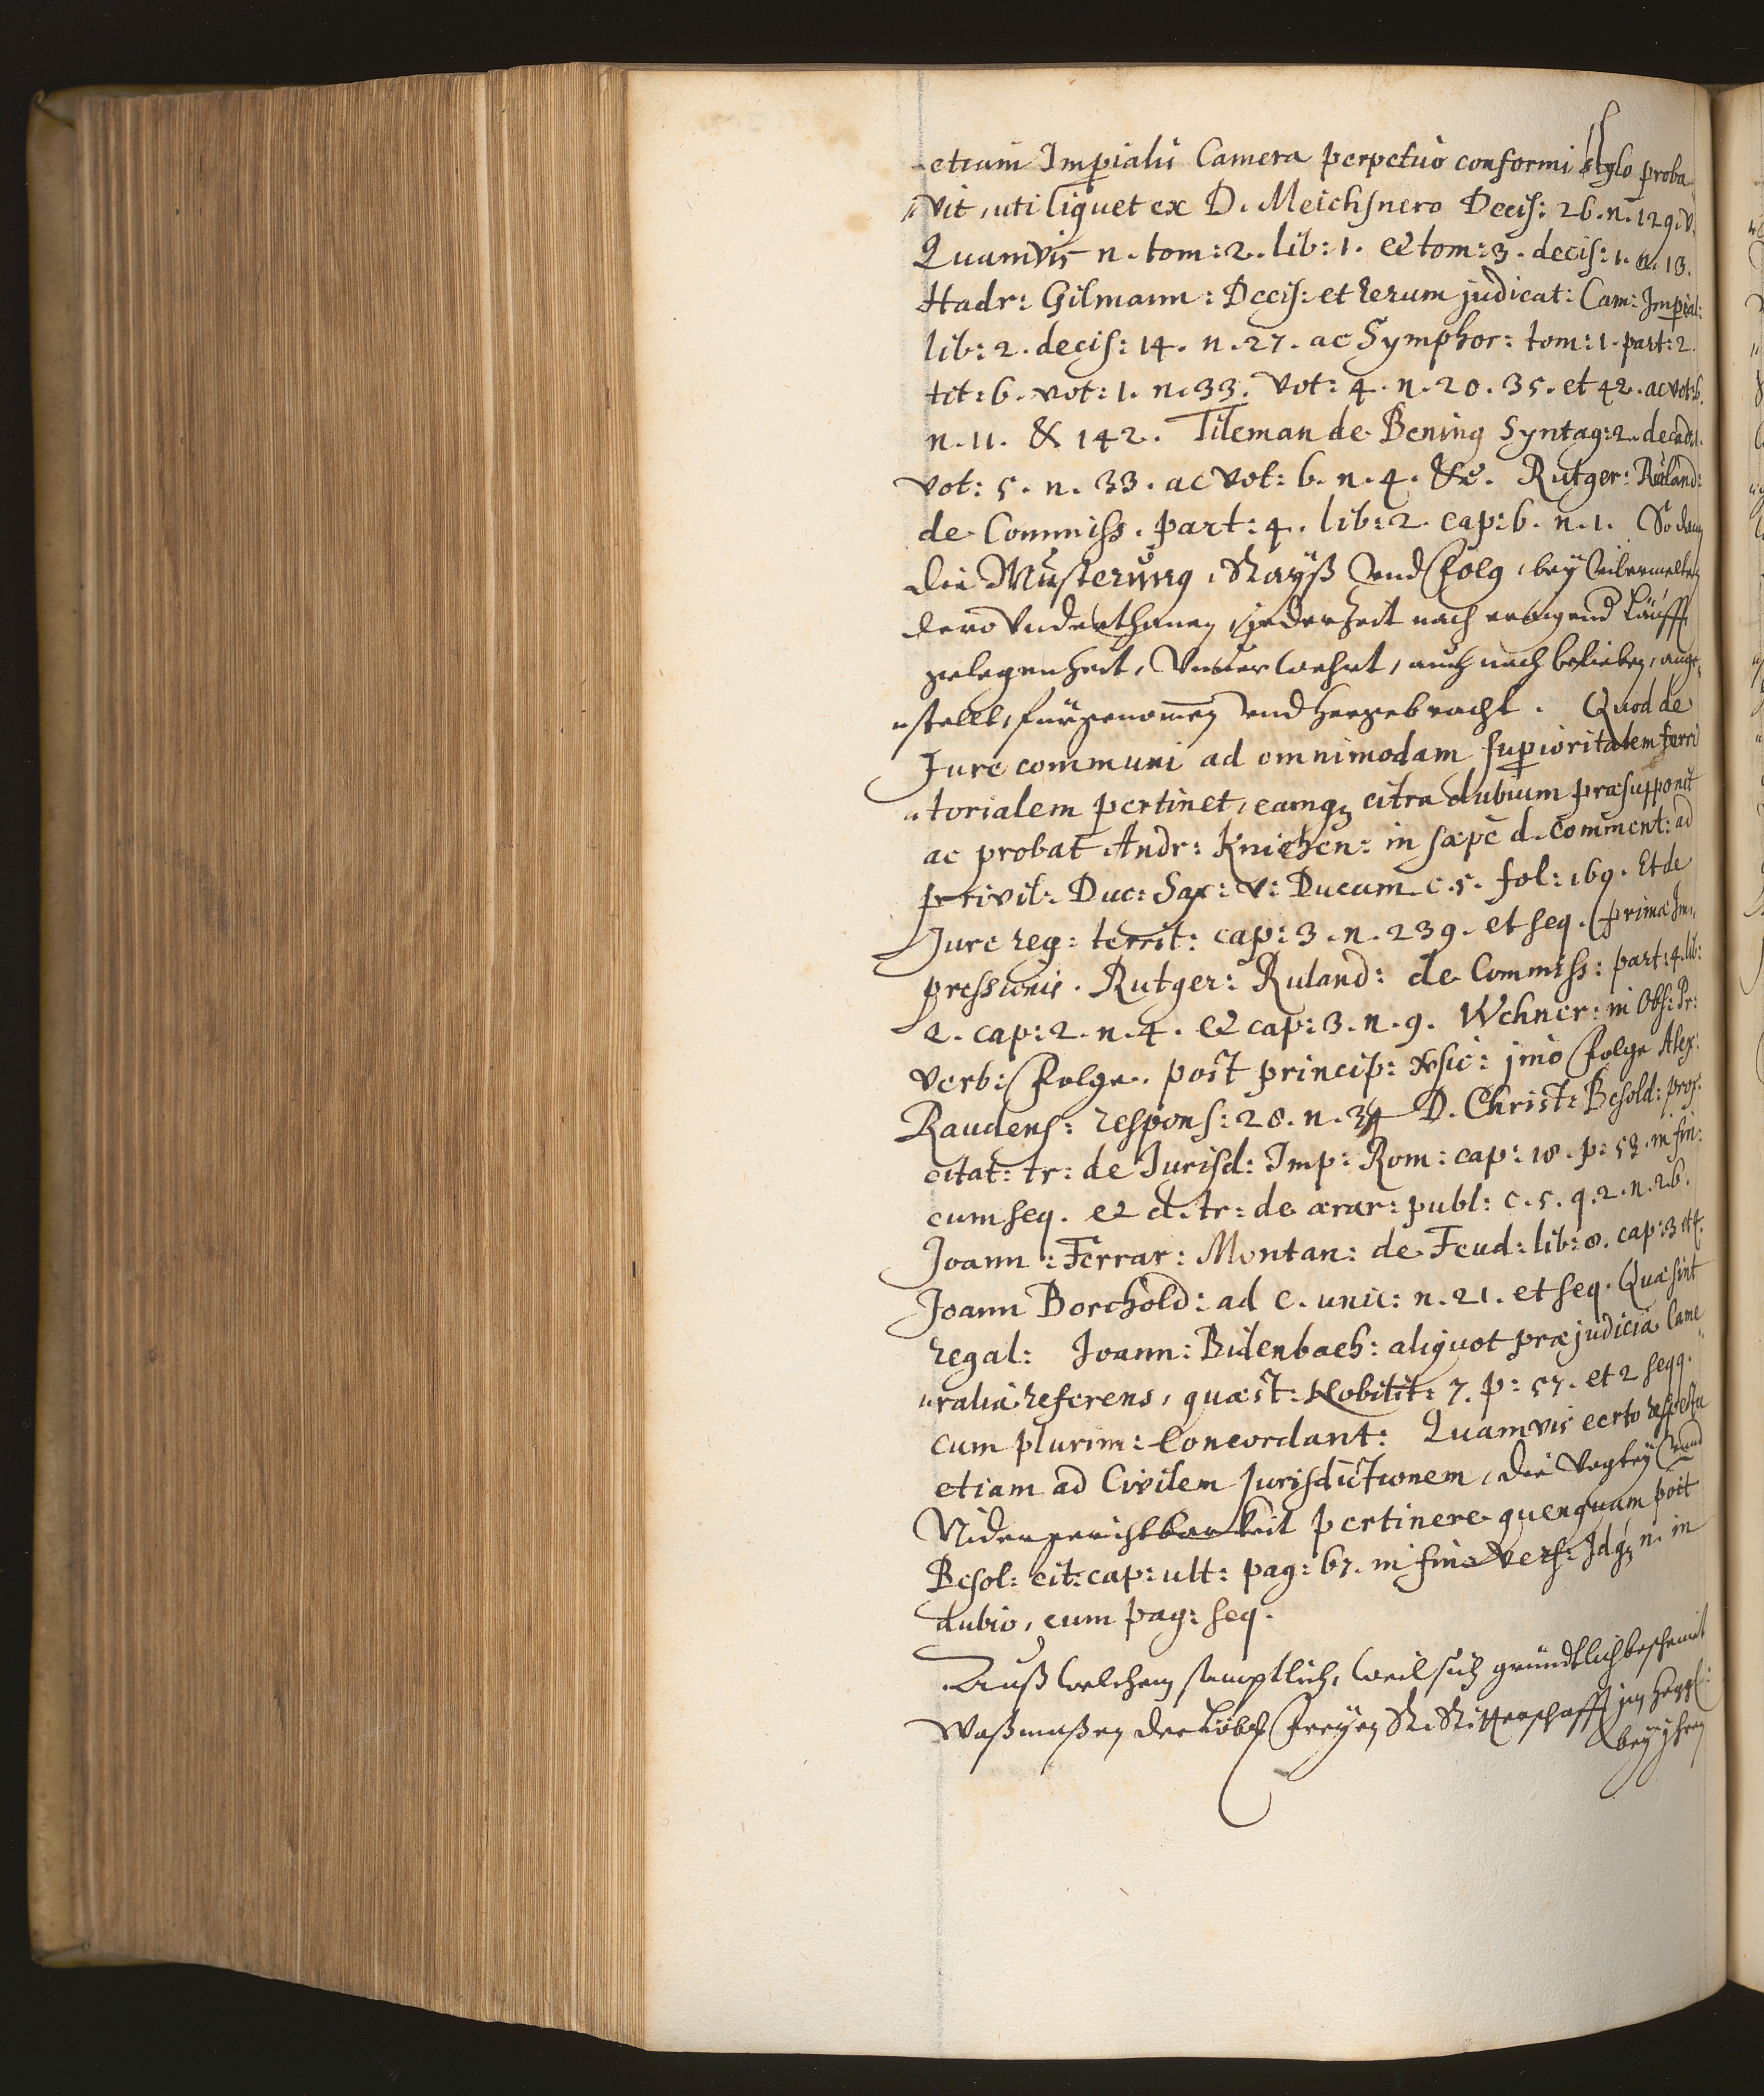 etiam Imperialis Camera perpetuò conformi stylo proba
„vit, uti liquet ex D. Meichsnero Decis: 26. n. 129. v.
Quamvis n. tom: 2. lib: 1. et tom: 3. decis: 1. n. 13.
Hadr: Gilmann: Decis: et rerum judicat: Cam: Imperial:
lib: 2. decis: 14. n. 27. ac Symphor: tom: 1. part: 2.
tit: 6. vot: 1. n. 33. vot: 4. n. 20. 35. et 42. ac vot: 6.
n. 11. & 142. Tileman de Bening Syntag: 2. decad: 1.
vot: 5. n. 33. ac vot: 6. n. 4. &c. Rutger: Ruland:
de Commiss. part: 4. lib: 2. cap: 6. n. 1. So dann
die Musterung, Rayß vnd Folg, bey
dero Vnderthanen, jederzeit nach läüff
gelegenheit, Vnuerwehrt, auch nach belieben, ange
„stellt, fürgenom̄en vnd hergebracht. Quod de
Jure communi ad omnimodam superioritatem terri
„torialem pertinet, eamq₃ citra dubium præsupponit
ac probat Andr: Knichen: in sæpè d. comment: ad
privil: Duc: Sax: v: Ducum c. 5. fol: 169. Et de
Jure reg: territ: cap: 3. n. 239. et seq. primæ Im„
pressionis. Rutger: Ruland: de Commiss: part: 4. lib:
2. cap: 2. n. 4. et cap: 3. n. 9. Wehner: in Obs: Pr:
verb: Folge. post princip: imò Folge Alex:
Raudens: respons: 28. n. D. Christ: Besold: prox:
citat: tr: de Jurisd: Imp: Rom: cap: 18. p: 53. in fin:
cum seq. et d. tr: de ærar: publ: c. 5. q. 2. n. 26.
Joann: Ferrar: Montan: de Feud: lib: 8. cap: 3 et 4.
Joann Borchold: ad c. unic: n. 21. et seq. Quæ sint
regal: Joann: Bidenbach: aliquot præjudicia Came
„ralia referens, quæst: Nobilit: 7. p: 57. et 2 seqq.
cum plurim: Concordant: Quamvis certo respectu
etiam ad Civilem Jurisdictionem, die Vogtey vnd
Nidergerichtbarkeit pertinere quenquam post
Besol: cit: cap: ult: pag: 67. in fine vers: Idq₃ n. in
dubio, cum pag: seq.
Auß welchem samptlich, weil sich gründtlich bescheint
Waßmaßen der Löbl: Freyen R. Ritterschafft im Hegg:
bey jhren